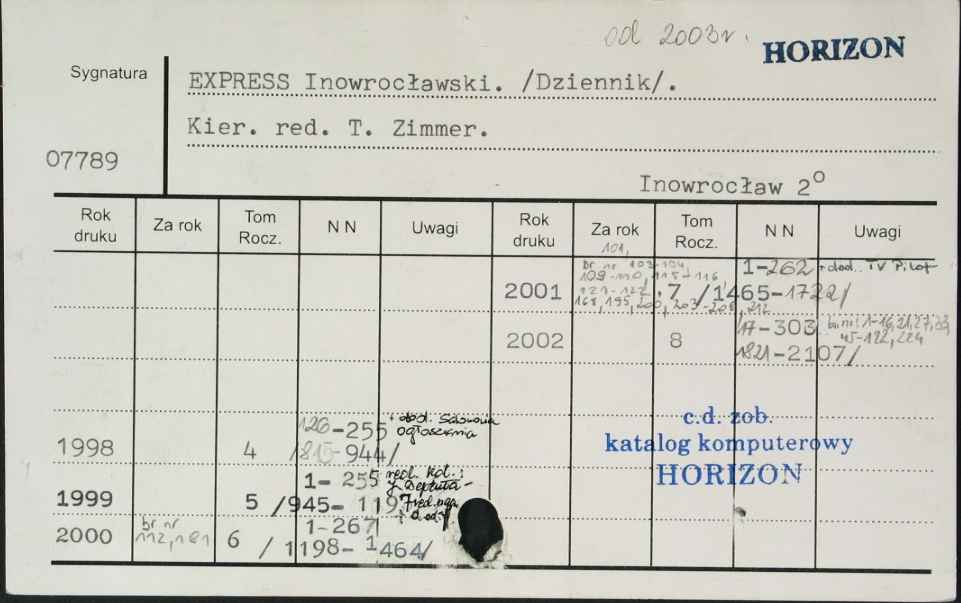 od 2003r.
HORIZON
Sygnatura
EXPRESS Inowrocławski. /Dziennik/.
Kier. red. T. Zimmer.
07789
Inowrocław 2°
Rok druku Za rok Tom Rocz. N N Uwagi Rok druku Za rok Tom Rocz. N N Uwagi
101,
br nr 103-104
109-110, 115-116
121-122,
168, 195, 200, 203-208, 212
2001 7 1-262 + dod. TV Pilot
/1465-1722/
2002 8 17-303 br. nr: 1-16, 21, 27, 33,
45-122, 224
1821-2107/
c.d. zob.
katalog komputerowy
HORIZON
1998 4 126-255 + dod.
ogłoszenia
/815-944/
1999 5 1-255 red. kol.:
/945-1197
2000 br nr
112, 181 6 1-267
/1198-1464/